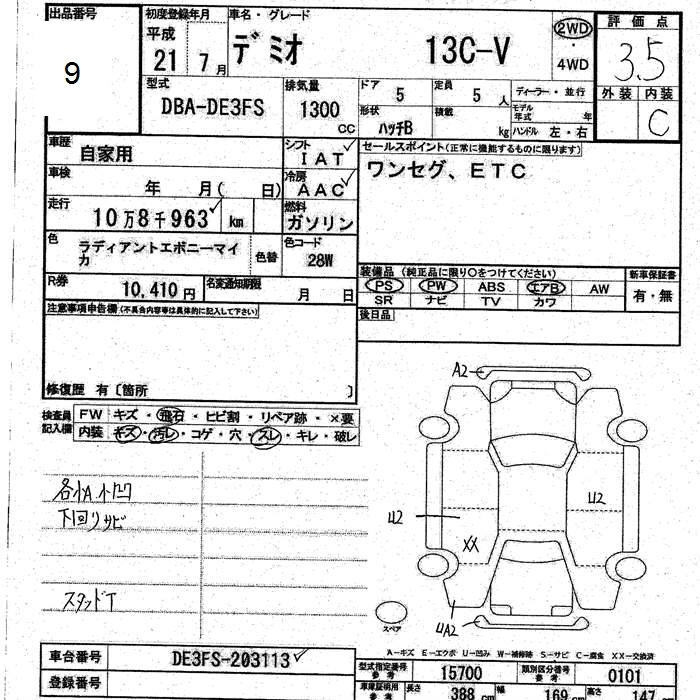 出品番号
9
初度登録年月
平成
21 7月
車名・グレード
デミオ 13C-V
2WD
・
4WD
評価点
3.5
外装 内装
C
型式
DBA-DE3FS
排気量
1300
CC
ドア 5
定員 5 人
ディーラー・並行
形状
ハッチB
積載 kg
モデル年式 年
ハンドル 左・右
車歴
自家用
シフト
IAT
セールスポイント(正常に機能するものに限ります)
ワンセグ、ETC
車検
年 月( 日)
冷房
AAC
走行
10万8千963 km
燃料
ガソリン
色
ラディアントエボニーマイカ
色替
色コード
28W
装備品 (純正品に限り○をつけてください)
新車保証書
PS PW ABS エアB AW
有・無
SR ナビ TV カワ
R券
10,410円
名変通知期限
月 日
注意事項申告欄(不具合内容等は具体的に記入して下さい)
後日品
修復歴 有〔箇所 〕
検査員記入欄
FW キズ・飛石・ヒビ割・リペア跡・×要
内装 キズ・汚レ・コゲ・穴・スレ・キレ・破レ
A2
各小A.小凹
下回りサビ
U2
U2
XX
スタッドT
スペア
UA2
A-キズ E-エクボ U-凹み W-補修跡 S-サビ C-腐食 XX-交換済
車台番号
DE3FS-203113
型式指定番号
参考
15700
類別区分番号
参考
0101
登録番号
車庫証明用
参考
長さ 388 cm 幅 169 cm 高さ 147 cm